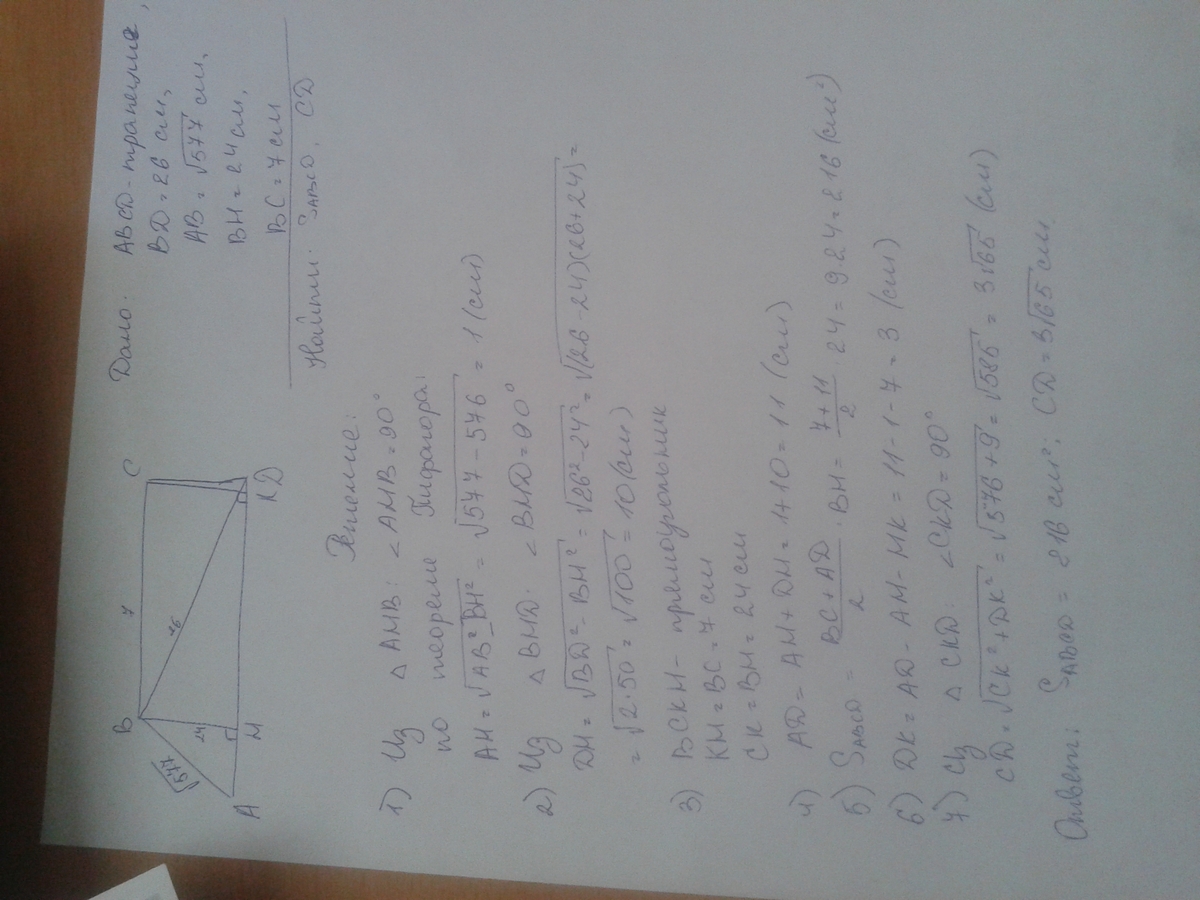 B 7 C
√577 24 26
A H K D
Дано: ABCD - трапеция,
BD = 26 см,
AB = √577 см,
BH = 24 см,
BC = 7 см
Найти: S_ABCD, CD
Решение:
1) Из △ AHB: ∠AHB = 90°
по теореме Пифагора:
AH = √(AB² - BH²) = √(577 - 576) = 1 (см)
2) Из △ BHD: ∠BHD = 90°
DH = √(BD² - BH²) = √(26² - 24²) = √((26 - 24)(26 + 24)) =
= √(2·50) = √100 = 10 (см)
3) BCKH - прямоугольник
KH = BC = 7 см
CK = BH = 24 см
4) AD = AH + DH = 1 + 10 = 11 (см)
5) S_ABCD = (BC + AD)/2 · BH = (7 + 11)/2 · 24 = 9·24 = 216 (см²)
6) DK = AD - AH - HK = 11 - 1 - 7 = 3 (см)
7) Из △ CKD: ∠CKD = 90°
CD = √(CK² + DK²) = √(576 + 9) = √585 = 3√65 (см)
Ответ: S_ABCD = 216 см²; CD = 3√65 см